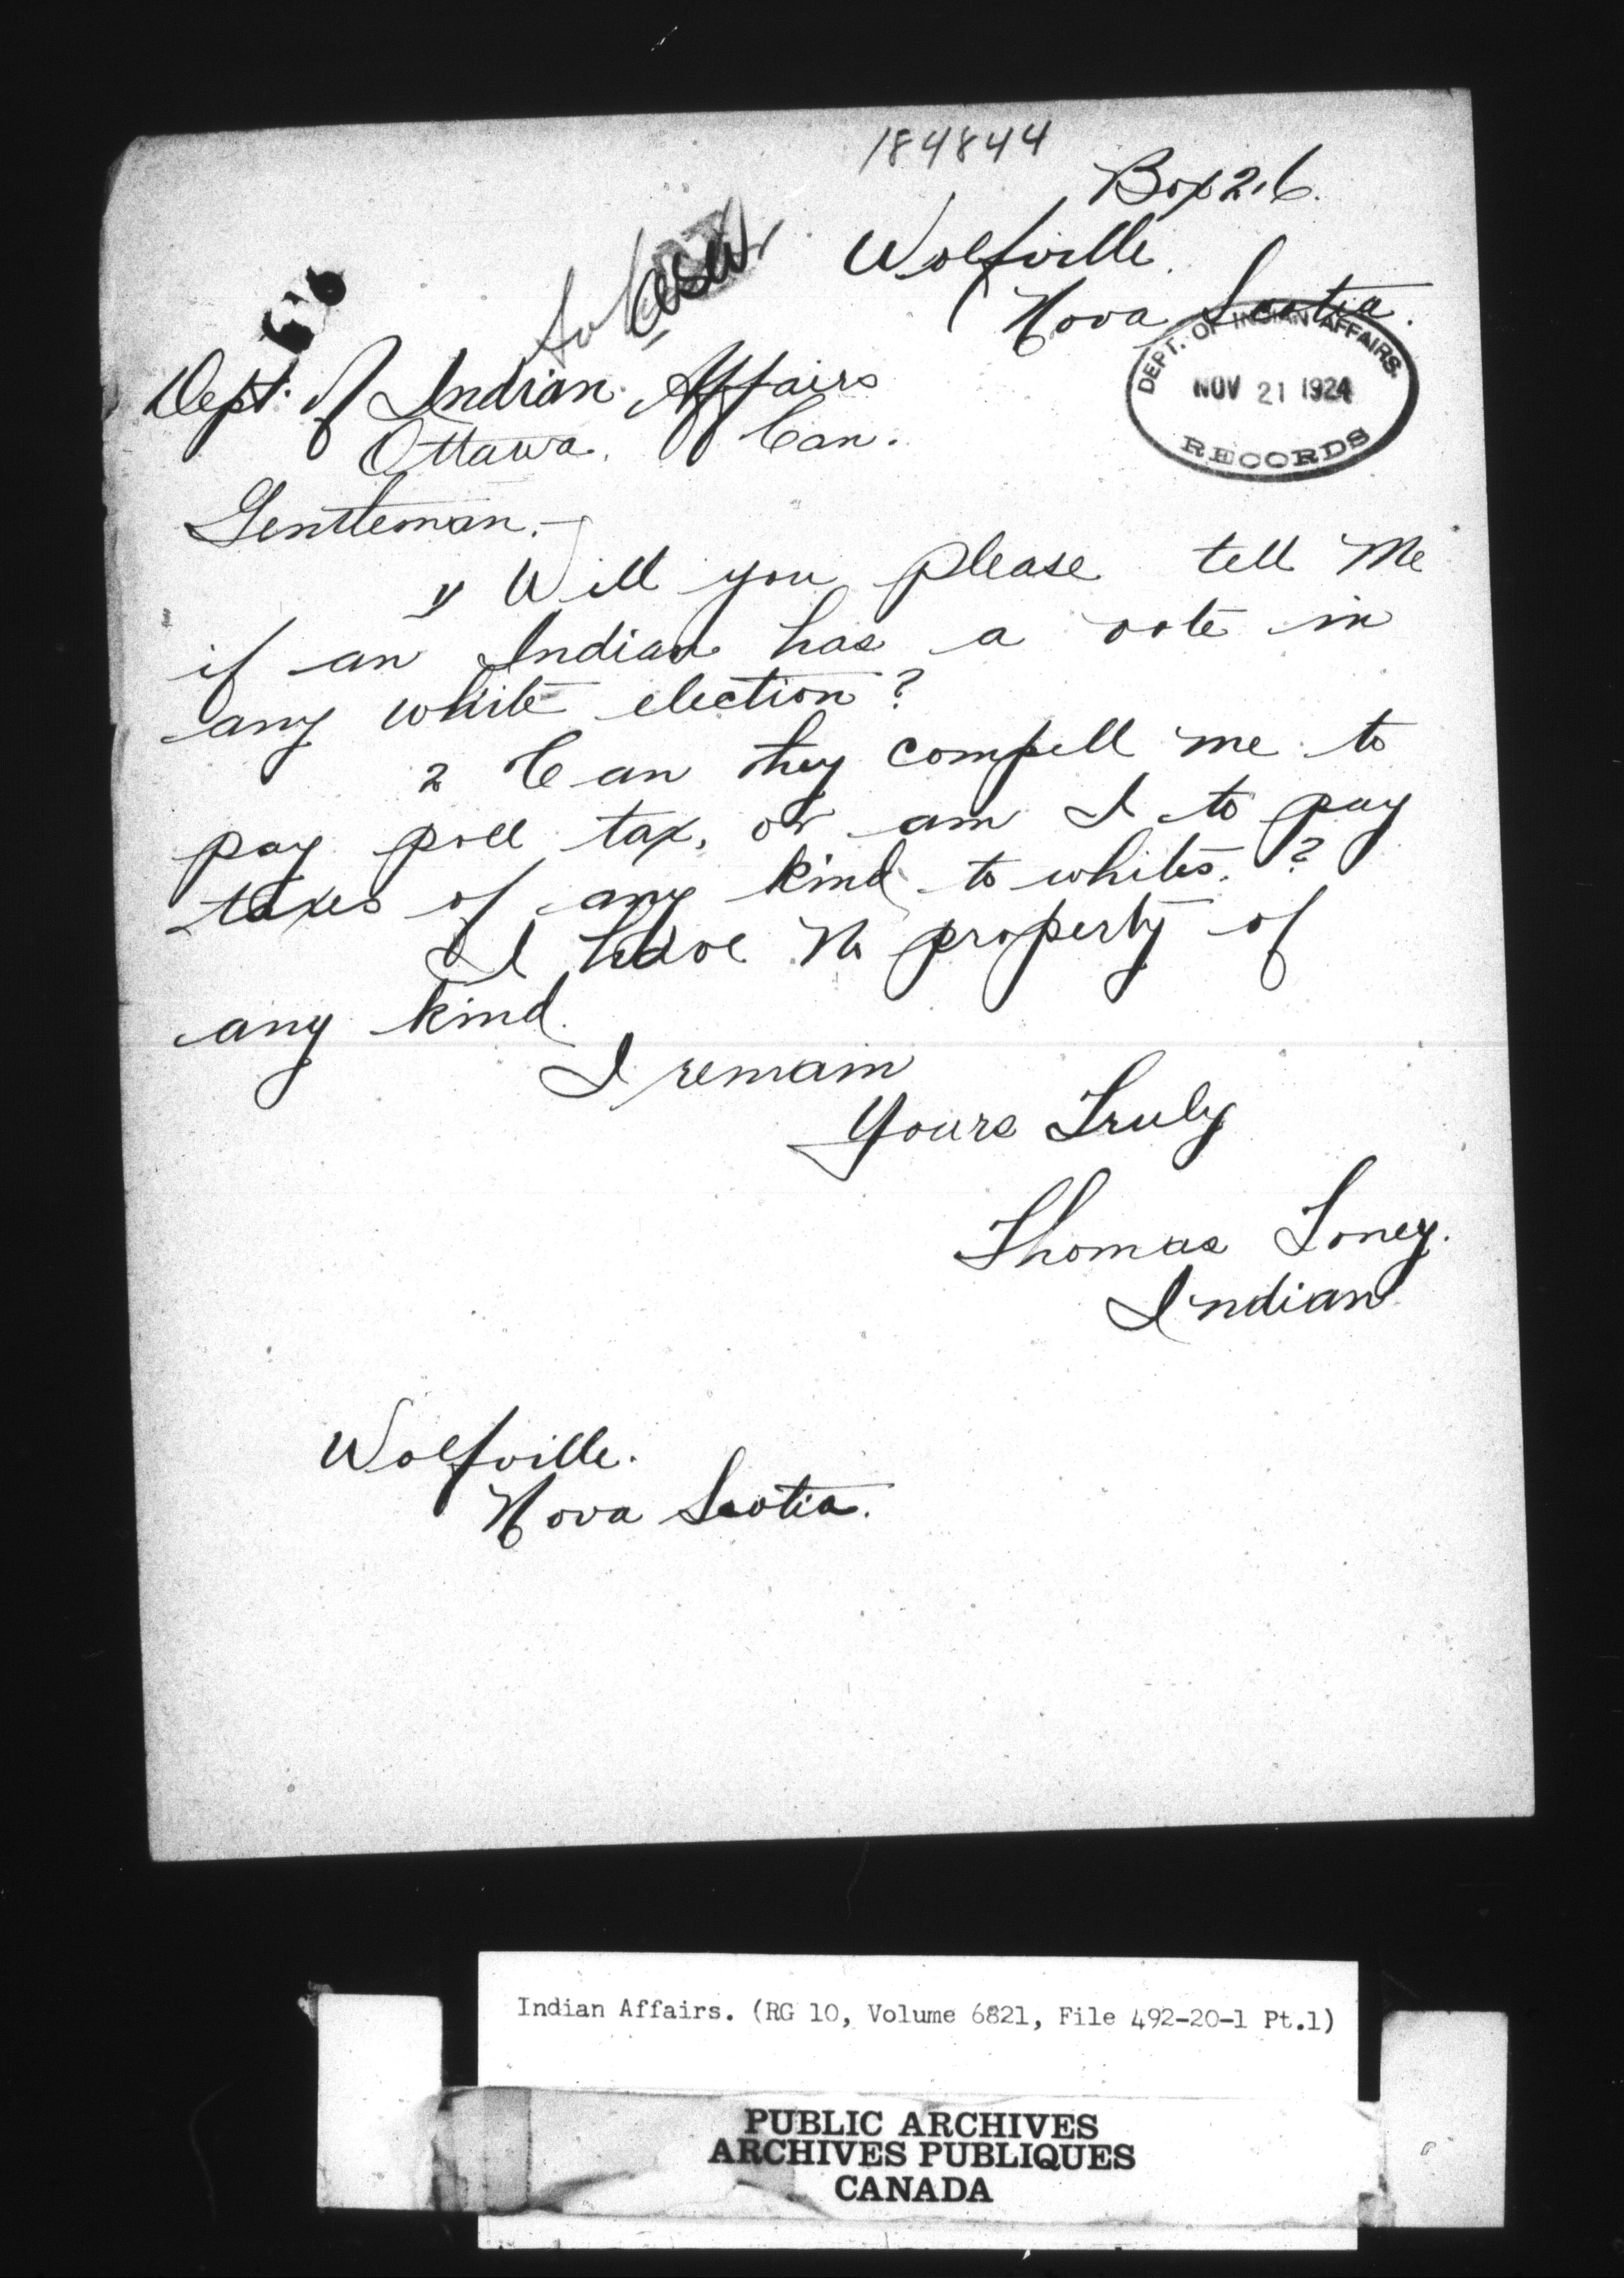 184844
Box 26.
Wolfville.
Nova Scotia.
DEPT. OF INDIAN AFFAIRS.
NOV 21 1924
RECORDS
Dept. of Indian Affairs
Ottawa. Can.
Gentleman.—
1/ Will you please tell Me
if an Indian has a vote in
any white election?
2 Can they compell me to
pay poll tax, or am I to pay
taxes of any kind to whites.?
I have No property of
any kind.
I remain
Yours Truly
Thomas Toney.
Indian
Wolfville.
Nova Scotia.
Indian Affairs. (RG 10, Volume 6821, File 492-20-1 Pt.1)
PUBLIC ARCHIVES
ARCHIVES PUBLIQUES
CANADA